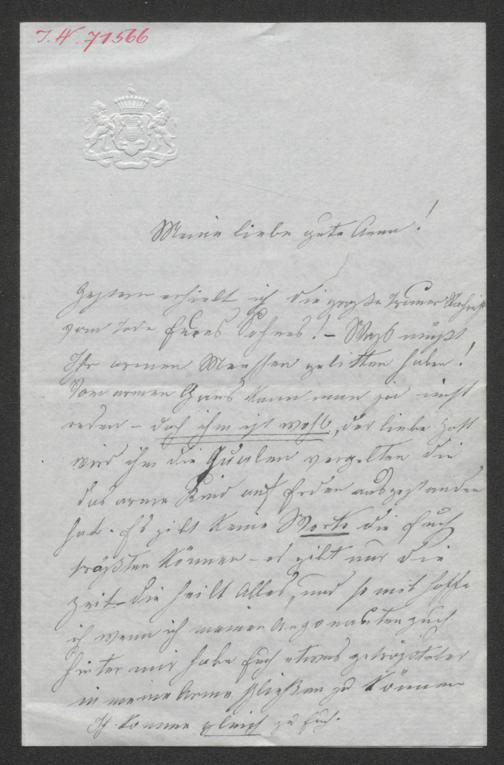 I.N. 71566
Meine liebe gute Anna!
Gestern erhielt ich die große Trauer Nachricht
vom Tode Eures Sohnes! – Was müßt
Ihr armen Menschen gelitten haben!
Vom armen Hans kann man ja nicht
reden – doch ihm ist wohl, der liebe Gott
wird ihm die Qualen vergelten die
das arme Kind auf Erden ausgestanden
hat. Es gibt keine Worte die Euch
trösten können – es gibt nur die
Zeit – die heilt Alles, und so mit hoffe
ich wenn ich meinen
hinter mir habe Euch etwas getrösteter
in meine Arme schließen zu können
Ich komme gleich zu Euch.